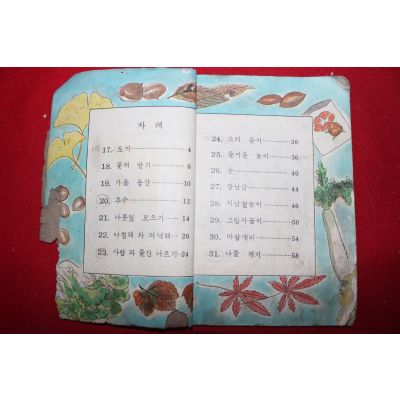 차 례
17. 토끼 4
18. 꽃씨 받기 6
19. 가을 동산 10
20. 추수 12
21. 나뭇잎 모으기 14
22. 아침해 와 저녁해 20
23. 사람 과 물건 나르기 24
24. 소리 듣기 30
25. 즐거운 놀이 36
26. 눈 40
27. 장난감 44
28. 사남철놀이 46
29. 그림자놀이 50
30. 바람개비 54
31. 나물 캐기 58